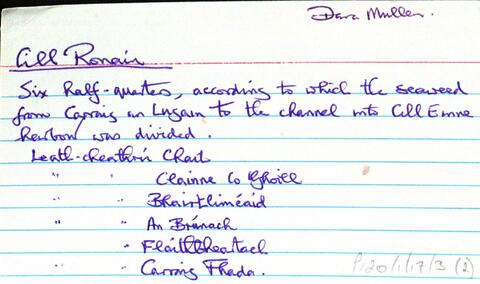 Dara Mullen.
Cill Ronain
Six half-quarters, according to which the seaweed
from Carraig an Lugain to the channel into Cill Einne
Harbour was divided.
Leath-cheathrú Chait
" " Clainne Co Ghoill
" " Bhairtliméaid
" " An Bránach
" Flaithbheartach
" " Carraig Fhada.
P120/1/17/3 (2)